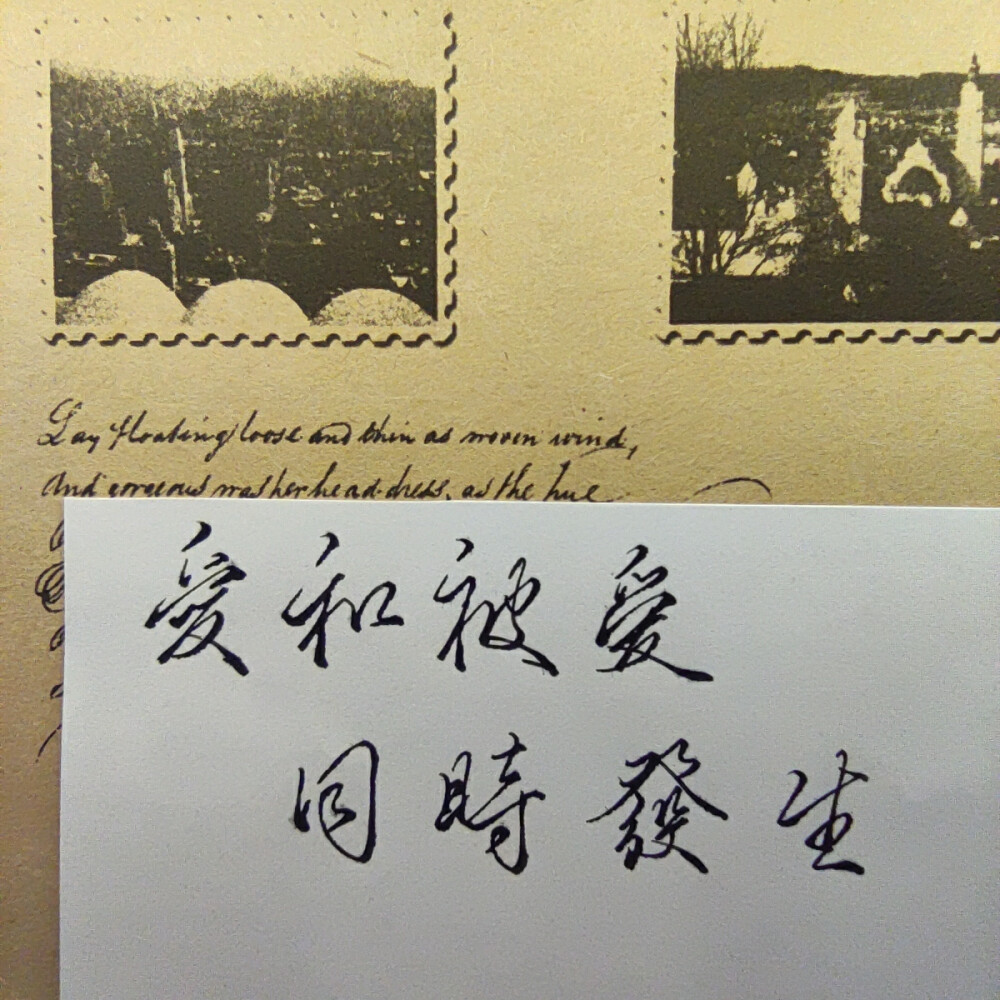 Lay floating loose and thin as woven wind,
And gorgeous was her head-dress, as the hue
愛和被愛
同時發生